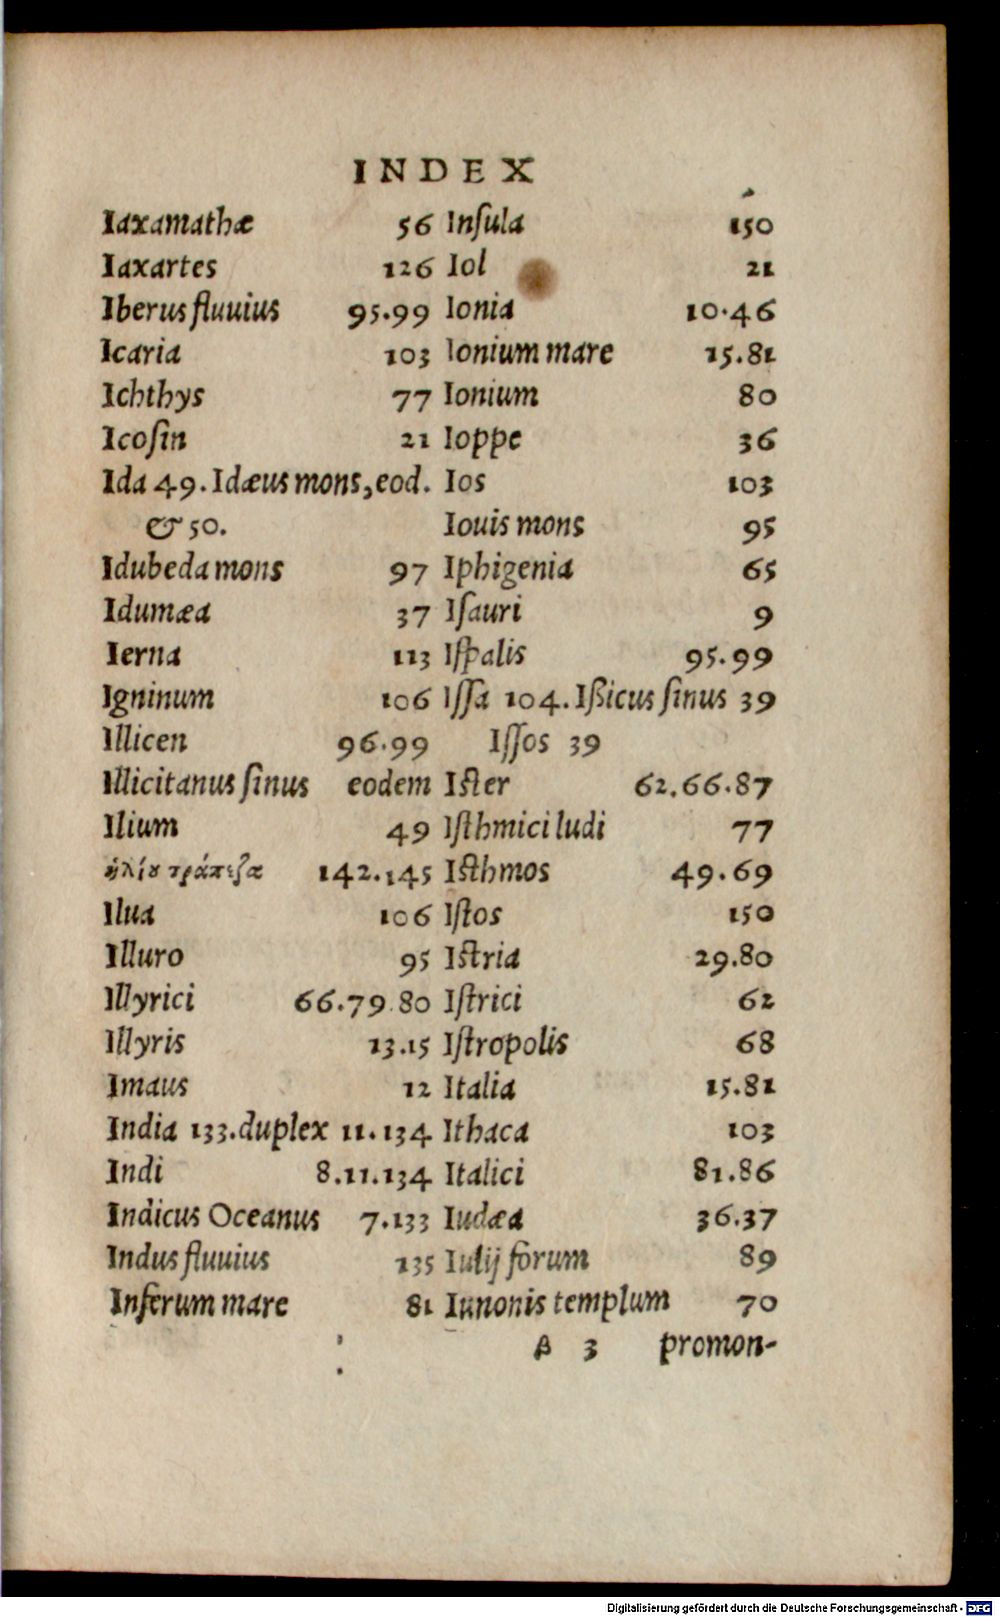 INDEX
Iaxamathæ 56
Iaxartes 126
Iberus fluuius 95.99
Icaria 103
Ichthys 77
Icoſin 21
Ida 49. Idæus mons, eod.
& 50.
Idubeda mons 97
Idumæa 37
Ierna 113
Igninum 106
Illicen 96.99
Illicitanus ſinus eodem
Ilium 49
ἡλίου τράπεζα 142.145
Ilua 106
Illuro 95
Illyrici 66.79.80
Illyris 13.15
Imaus 12
India 133. duplex 11.134
Indi 8.11.134
Indicus Oceanus 7.133
Indus fluuius 135
Inferum mare 81
Inſula 150
Iol 21
Ionia 10.46
Ionium mare 15.81
Ionium 80
Ioppe 36
Ios 103
Iouis mons 95
Iphigenia 65
Iſauri 9
Iſpalis 95.99
Iſſa 104. Ißicus ſinus 39
Iſſos 39
Iſter 62.66.87
Iſthmici ludi 77
Iſthmos 49.69
Iſtos 150
Iſtria 29.80
Iſtrici 62
Iſtropolis 68
Italia 15.81
Ithaca 103
Italici 81.86
Iudæa 36.37
Iulij forum 89
Iunonis templum 70
β 3 promon-
Digitalisierung gefördert durch die Deutsche Forschungsgemeinschaft - DFG